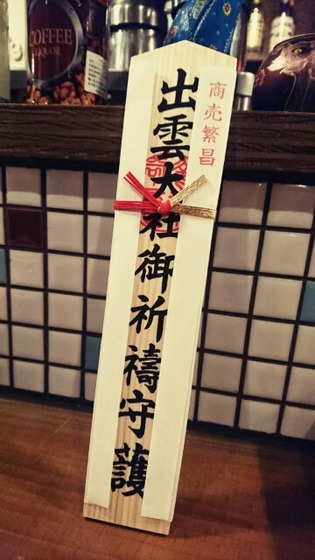 商売繁昌
出雲大社御祈禱守護
COFFEE
LIQUOR